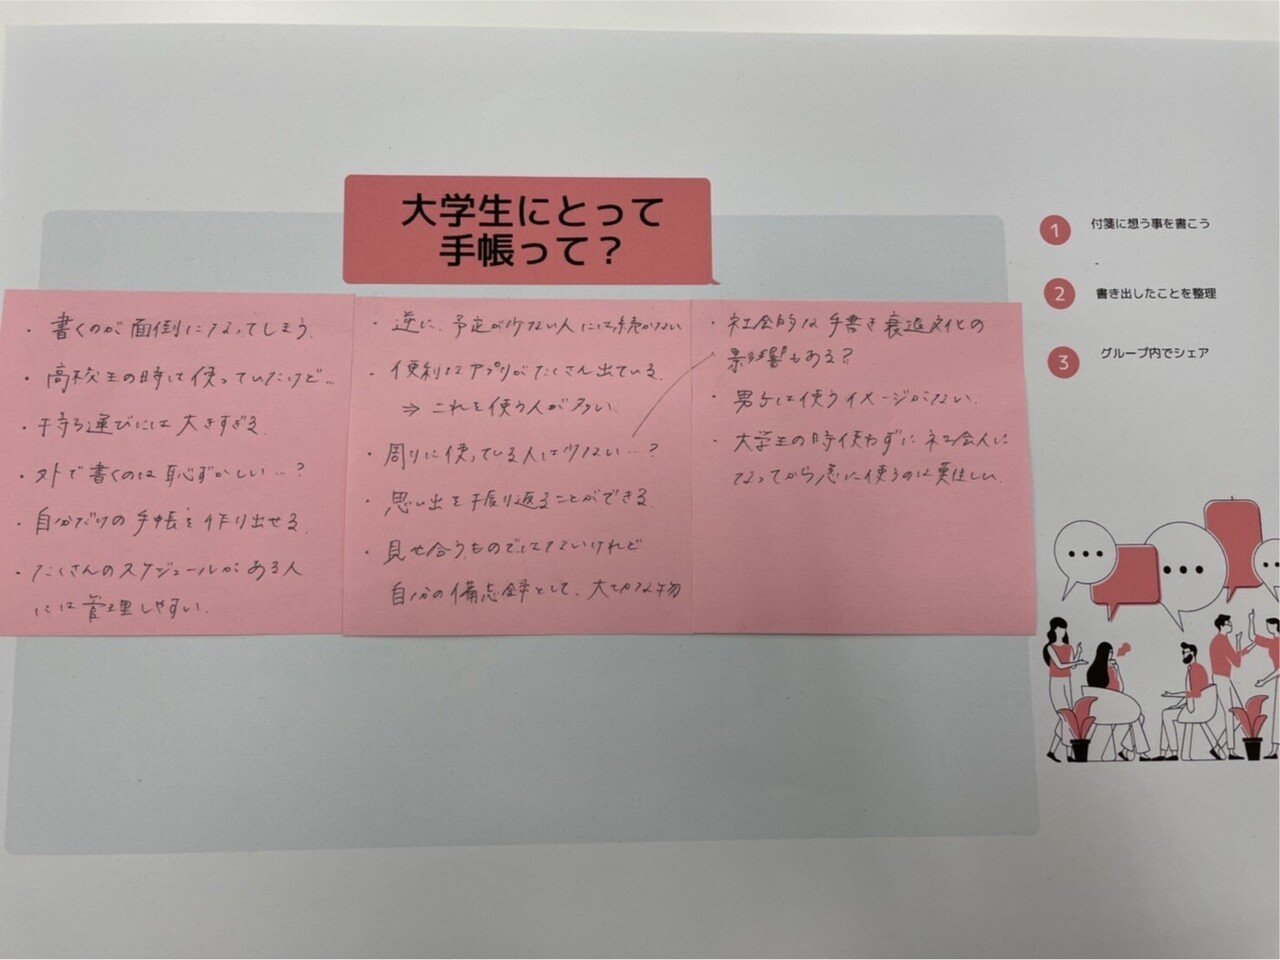 大学生にとって
手帳って？
1 付箋に想う事を書こう
2 書き出したことを整理
3 グループ内でシェア
・書くのが面倒になってしまう.
・高校生の時は使っていたけど…
・持ち運びには大きすぎる.
・外で書くのは恥ずかしい…?
・自分だけの手帳を作り出せる.
・たくさんのスケジュールがある人
には管理しやすい.
・逆に、予定が少ない人には続かない
・便利なアプリがたくさん出ている.
⇒ これを使う人が多い.
・周りに使っている人は少ない…?
・思い出を振り返ることができる.
・見せ合うものではないけれど
自分の備忘録として、大切な物
・社会的な手書き衰退文化の
影響もある?
・男子は使うイメージがない.
・大学生の時使わずに社会人に
なってから急に使うのは難しい.